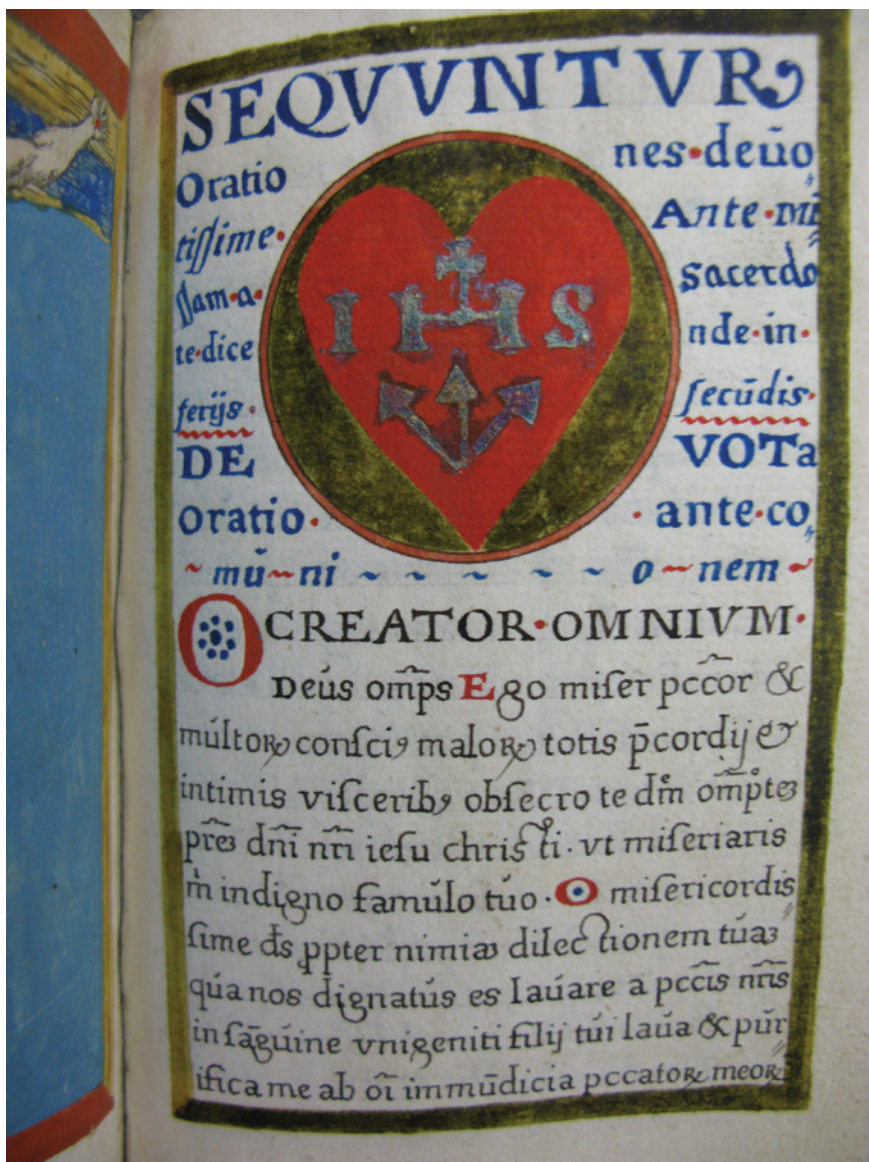 SEQVVNTVR
Oratio nes·deūo
tissime· Ante·mi
ssam·a· sacerdo
te·dice nde·in·
ferijs· secūdis·
DE VOTa
Oratio· ·ante·co
~mū~ni ~ ~ ~ ~ ~ o~nem~
IHS
O CREATOR·OMNIVM·
Deús om̄ps Ego miser pccor̄ &
múltoꝝ consciꝰ maloꝝ totis p̄cordij &
intimis visceribꝰ obsecro te dm̄ om̄pteꝫ
pr̄eꝫ dn̄i nr̄i iesu christi·vt miseriaris
m̊ indigno famúlo túo·O misericordis
sime ds̄ ꝓpter nimiaꝫ dilectionem túaꝫ
qúa nos dignatús es laúare a pccīs nr̄is
in sāgúine vnigeniti filij túi laúa & púr
ifica me ab oī immūdicia pccatoꝝ meoꝝ